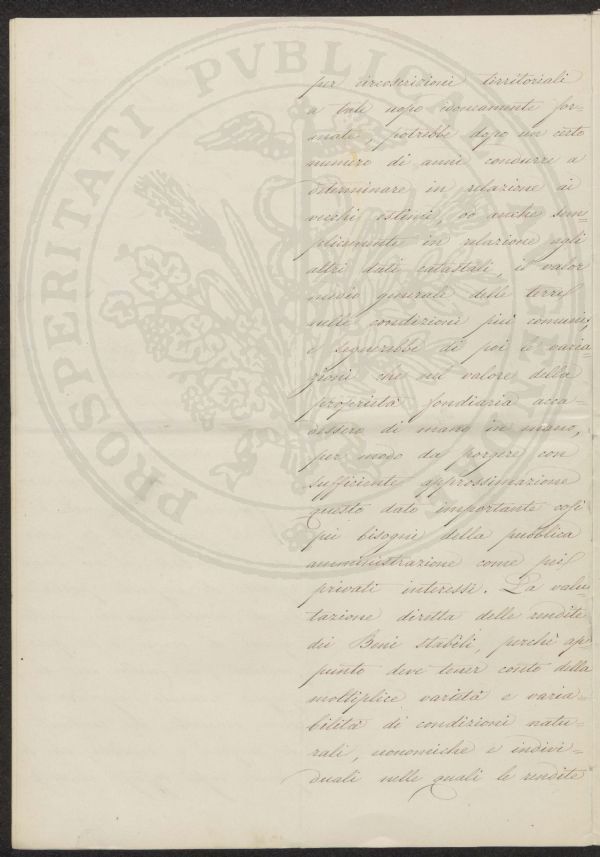 PROSPERITATI PVBLICAE
per circoscrizioni territoriali
a tale uopo idoneamente for=
mate, potrebbe dopo un certo
numero di anni condurre a
determinare in relazione ai
vecchi estimi, od anche sem=
plicemente in relazione agli
altri dati catastali, il valor
medio generale delle terre
nelle condizioni più comuni,
e seguirebbe di poi le varia=
zioni che nel valore della
proprietà fondiaria acca=
dessero di mano in mano,
per modo da porgere con
sufficiente approssimazione
questo dato importante così
pei bisogni della pubblica
amministrazione come pei
privati interessi. La valu=
tazione diretta delle rendite
dei Beni stabili, perchè ap=
punto deve tener conto della
moltiplice varietà e varia=
bilità di condizioni natu=
rali, economiche e indivi=
duali nelle quali le rendite